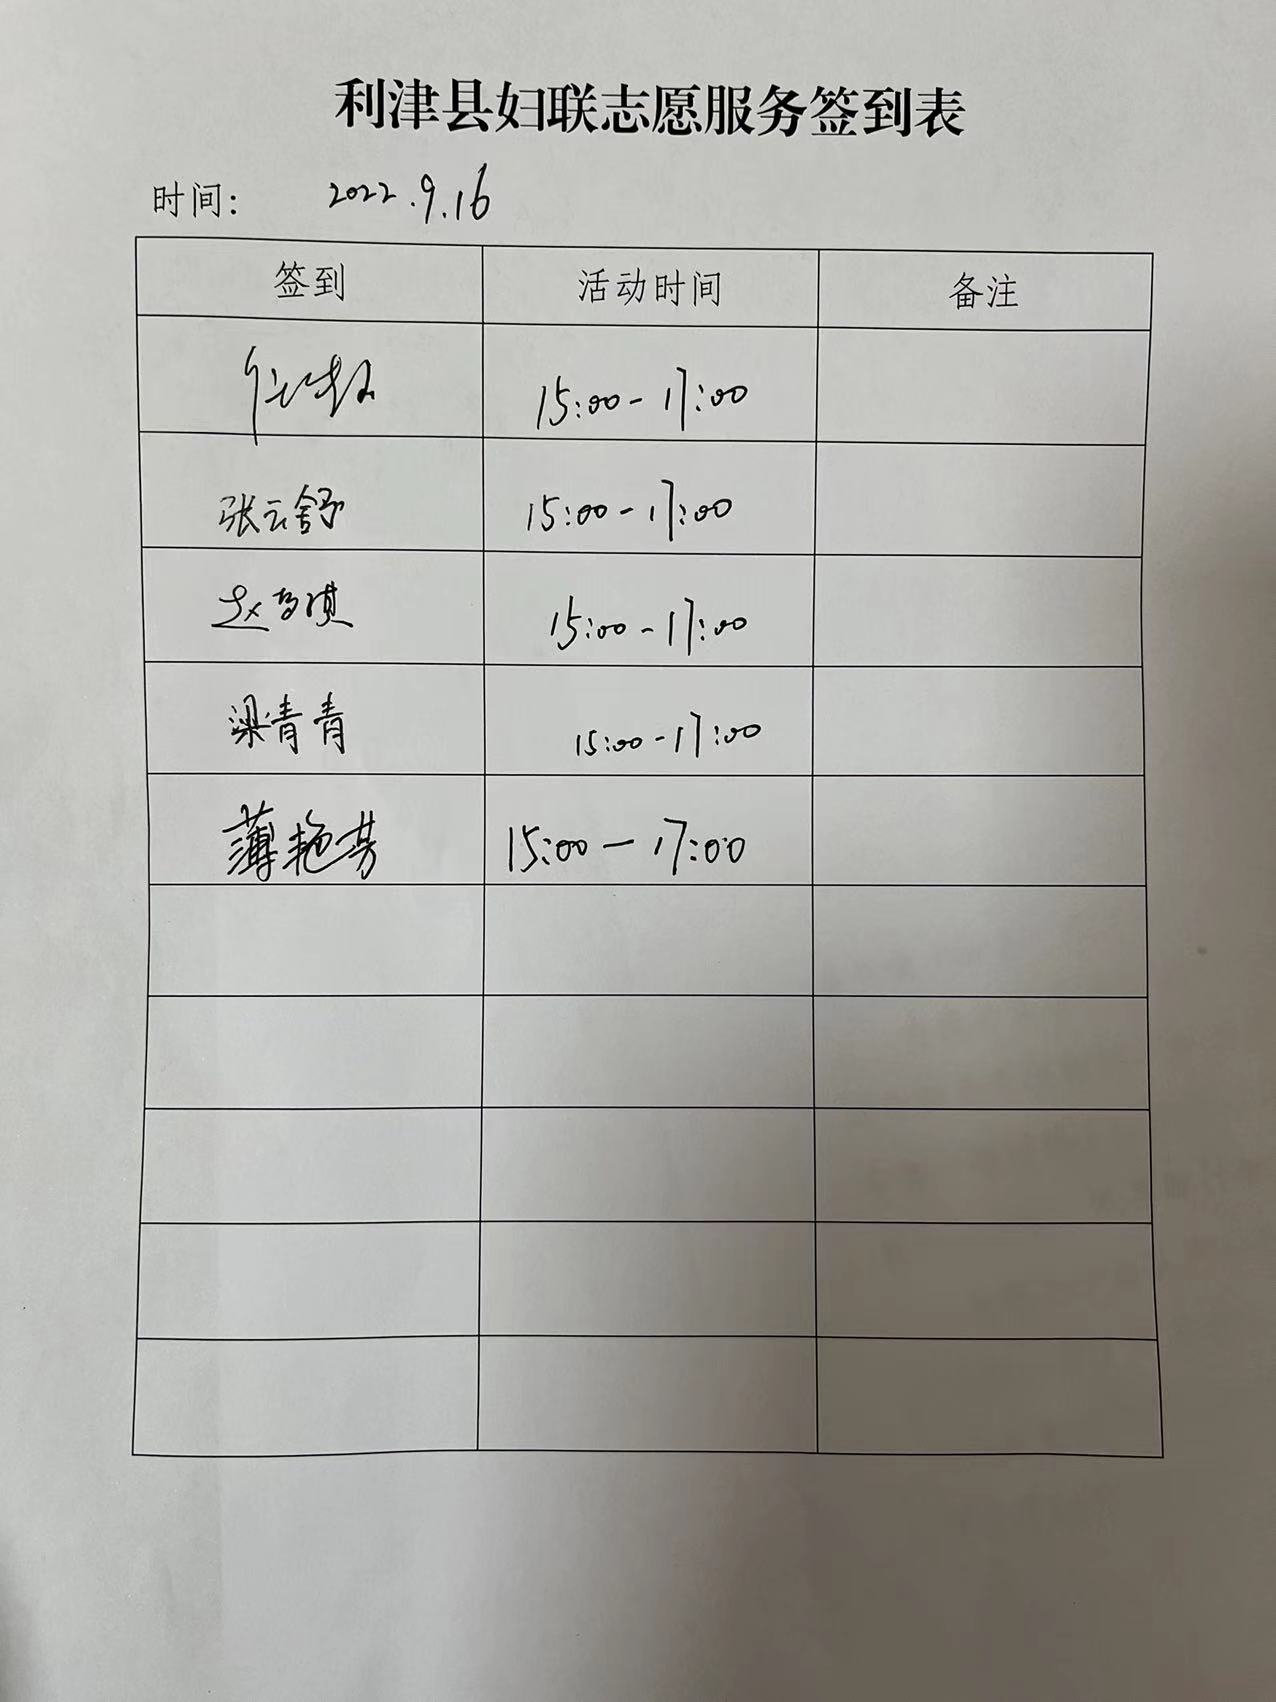 利津县妇联志愿服务签到表
时间: 2022.9.16
签到 活动时间 备注
15:00-17:00
张云舒 15:00-17:00
赵 琪 15:00-17:00
梁青青 15:00-17:00
薄艳芳 15:00-17:00